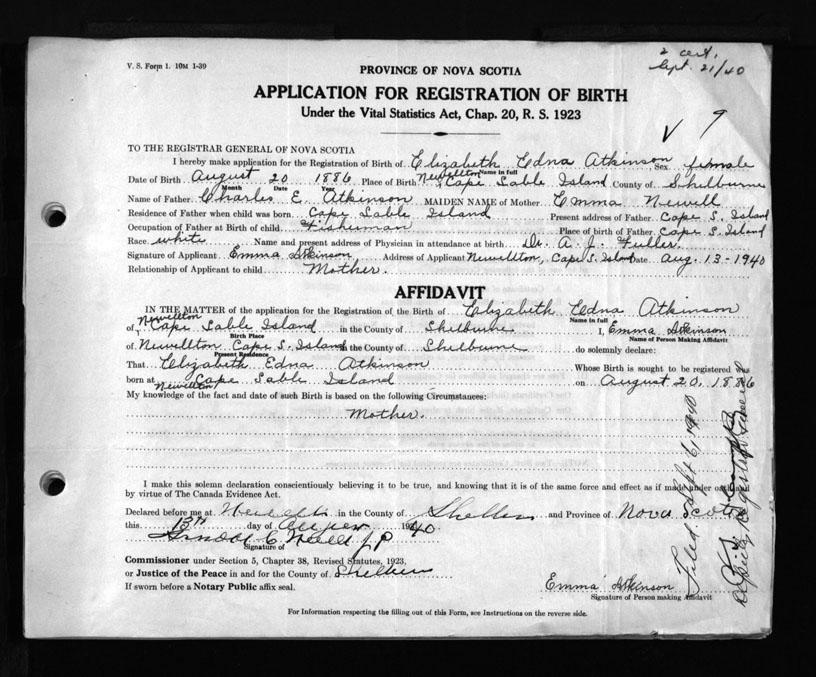 2 cert.
Sept. 21/40
V. S. Form 1. 10M 1-39
PROVINCE OF NOVA SCOTIA
APPLICATION FOR REGISTRATION OF BIRTH
Under the Vital Statistics Act, Chap. 20, R. S. 1923
V 9
TO THE REGISTRAR GENERAL OF NOVA SCOTIA
I hereby make application for the Registration of Birth of Elizabeth Edna Atkinson Sex female
Name in full
Date of Birth August 20 1886 Place of Birth Newellton, Cape Sable Island County of Shelburne
Month Date Year
Name of Father Charles E. Atkinson MAIDEN NAME of Mother Emma Newell
Residence of Father when child was born Cape Sable Island Present address of Father Cape S. Island
Occupation of Father at Birth of child Fisherman Place of birth of Father Cape S. Island
Race white Name and present address of Physician in attendance at birth Dr. A. J. Fuller.
Signature of Applicant Emma Atkinson Address of Applicant Newellton, Cape S. Island Date Aug. 13-1940
Relationship of Applicant to child Mother.
AFFIDAVIT
IN THE MATTER of the application for the Registration of the Birth of Elizabeth Edna Atkinson
Name in full
of Newellton Cape Sable Island in the County of Shelburne I, Emma Atkinson
Birth Place Name of Person Making Affidavit
of Newellton Cape S. Island in the County of Shelburne do solemnly declare:
Present Residence
That Elizabeth Edna Atkinson Whose Birth is sought to be registered was
born at Newellton Cape Sable Island on August 20, 1886
My knowledge of the fact and date of such Birth is based on the following Circumstances:
Mother.
I make this solemn declaration conscientiously believing it to be true, and knowing that it is of the same force and effect as if made under oath and
by virtue of The Canada Evidence Act.
Declared before me at in the County of and Province of Nova Scotia
this 13th day of 1940
J P
Signature of
Commissioner under Section 5, Chapter 38, Revised Statutes, 1923,
or Justice of the Peace in and for the County of
If sworn before a Notary Public affix seal.
Emma Atkinson
Signature of Person making Affidavit
For Information respecting the filling out of this Form, see Instructions on the reverse side.
Filed Sept 6, 1940
Deputy Registrar General